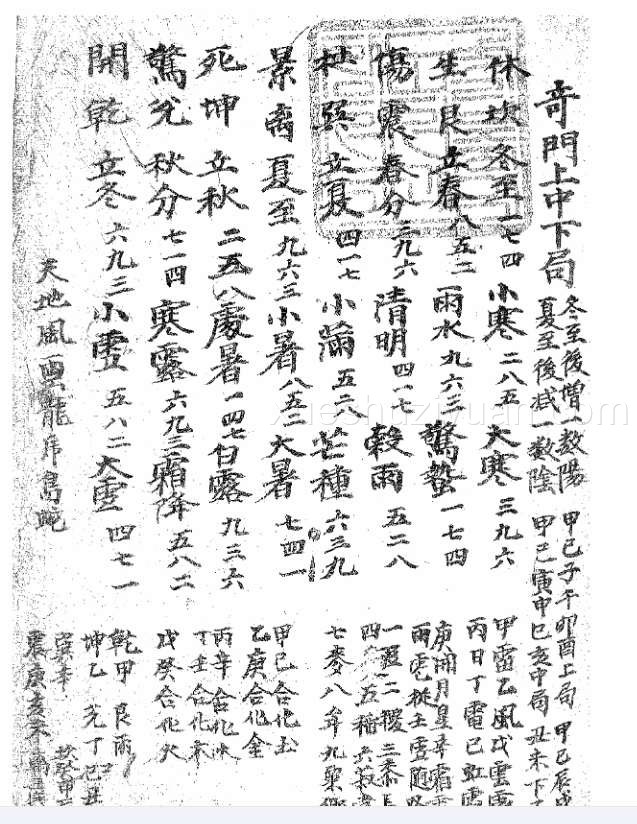 奇門上中下局
冬至後增一数陽
夏至後減一数陰
甲己子午卯酉上局 甲己辰戌
甲己寅申巳亥中局 丑未下
休坎冬至一七四 小寒二八五 大寒三九六
生艮立春八五二 雨水九六三 驚蟄一七四
傷震春分三九六 清明四一七 穀雨五二八
杜巽立夏四一七 小滿五二八 芒種六三九
景离夏至九六三 小暑八五二 大暑七四一
死坤立秋二五八 處暑一四七 白露九三六
驚兌秋分七一四 寒露六九三 霜降五八二
開乾立冬六九三 小雪五八二 大雪四七一
天地風雲龍虎鳥蛇
甲雷乙風戊
丙日丁電己虹
庚 月星辛霜
雨 從壬 随
四 五稻六
七麥八 九粟
甲己合化土
乙庚合化金
丙辛合化水
丁壬合化木
戊癸合化火
乾甲艮丙
坤乙兌丁己丑
巽辛
震庚亥未